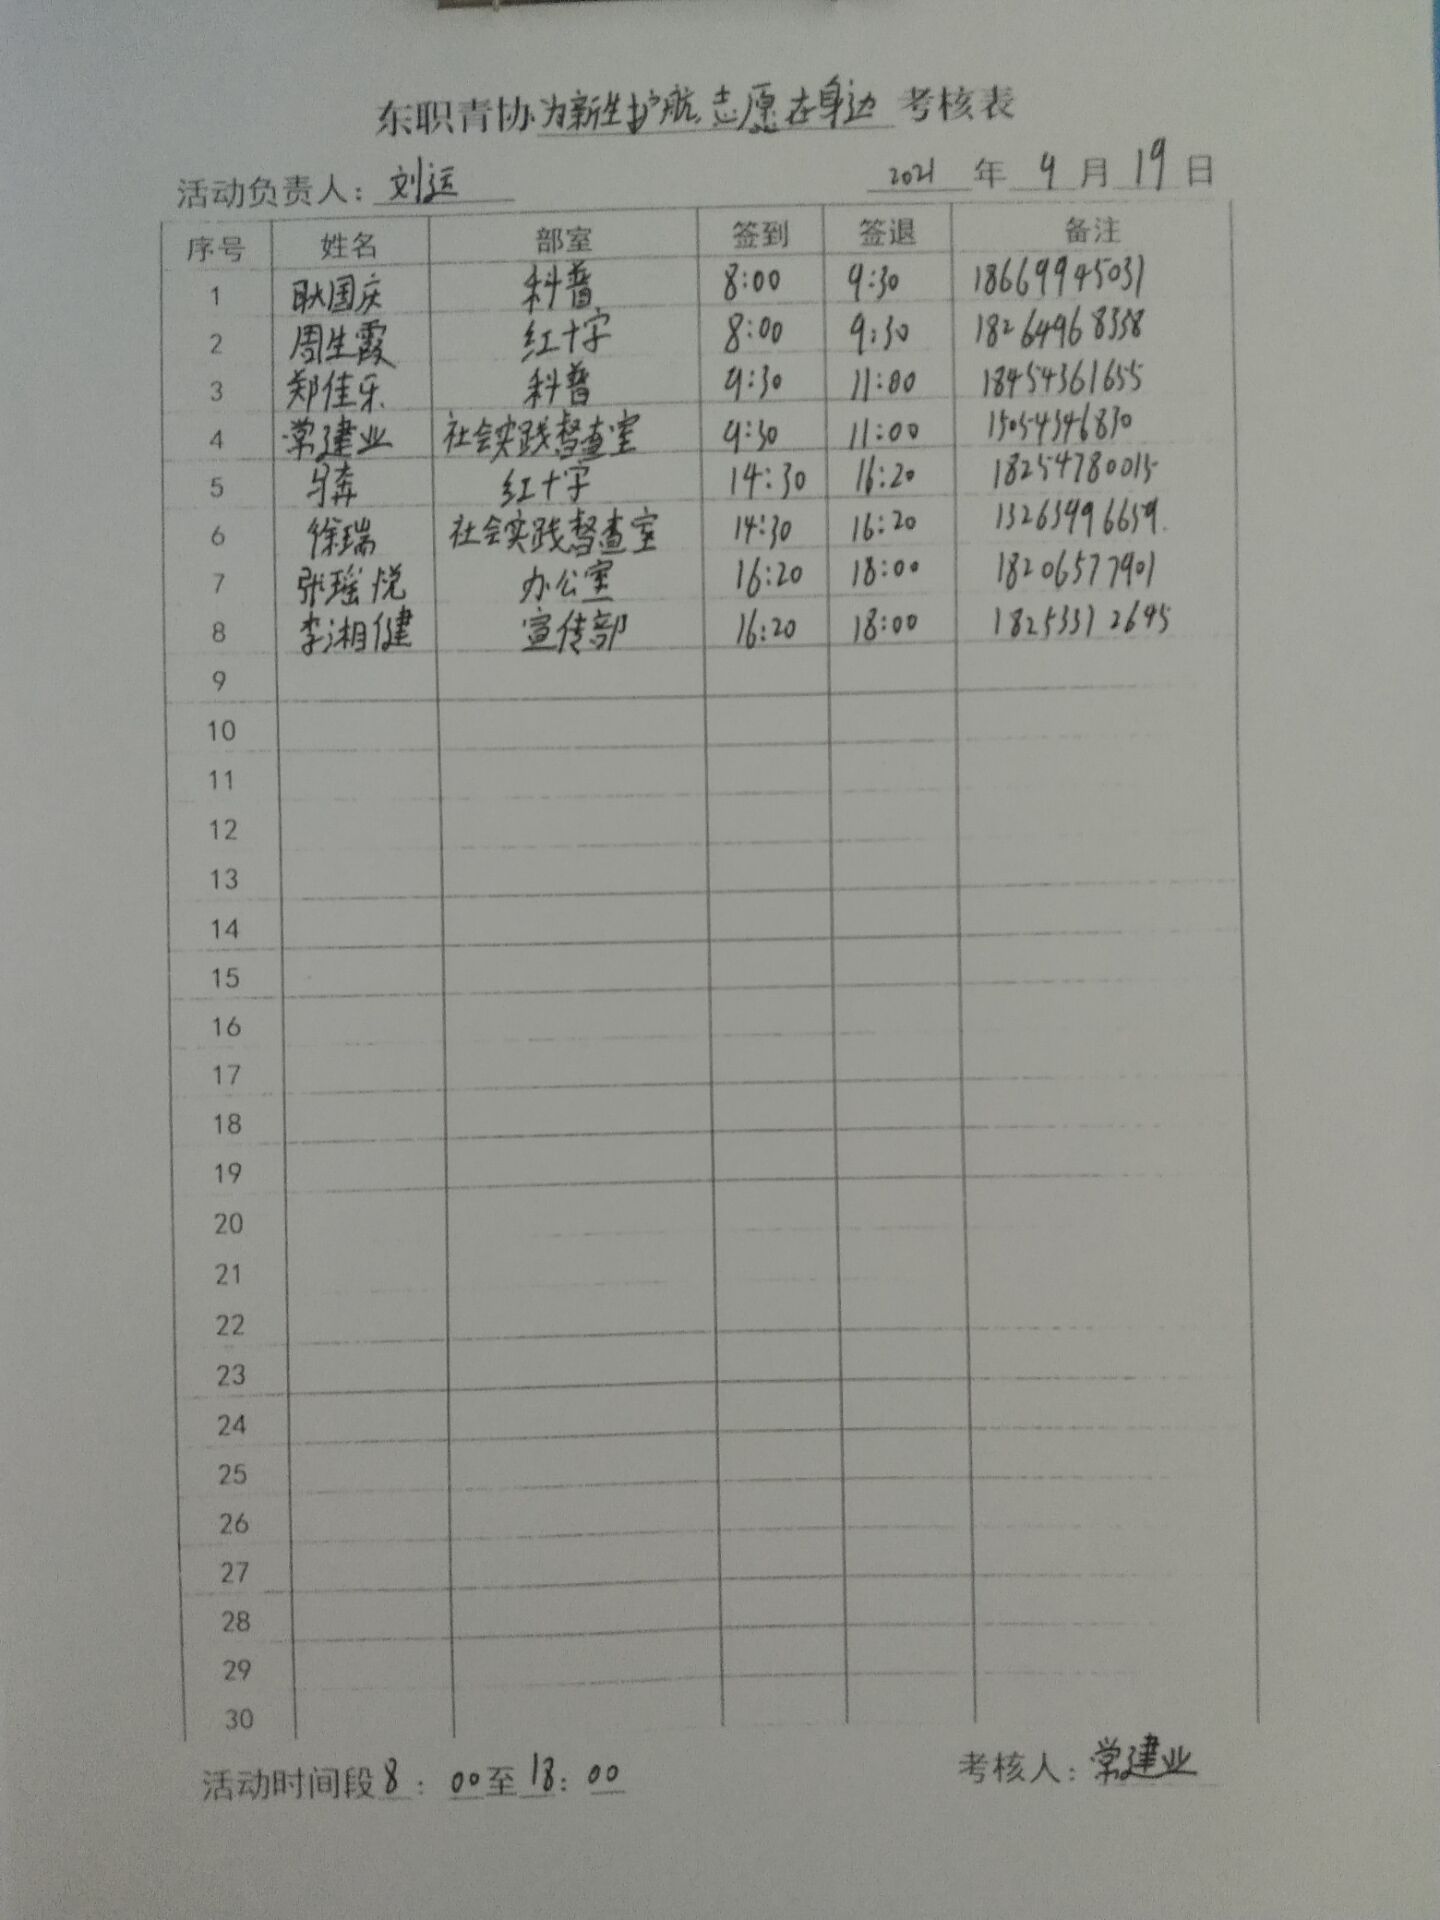 东职青协为新生护航,志愿在身边 考核表
活动负责人：刘运 2021 年 9 月 19 日
序号 姓名 部室 签到 签退 备注
1 耿国庆 科普 8:00 9:30 18669945031
2 周生霞 红十字 8:00 9:30 18264968358
3 郑佳乐 科普 9:30 11:00 18454361655
4 常建业 社会实践督查室 9:30 11:00 15054346830
5 马奔 红十字 14:30 16:20 18254780015
6 徐瑞 社会实践督查室 14:30 16:20 13263996659
7 张瑶悦 办公室 16:20 18:00 18206577901
8 李湘健 宣传部 16:20 18:00 18253312695
9
10
11
12
13
14
15
16
17
18
19
20
21
22
23
24
25
26
27
28
29
30
活动时间段 8：00至18：00 考核人：常建业